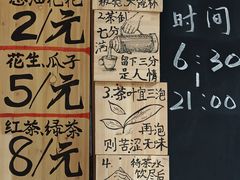 2/元
花生、瓜子
5/元
红茶、绿茶
8/元
2、茶倒
七分
满
留下三分
是人情
3、茶叶宜三泡
再泡
则苦涩无味
4、待茶水
饮尽后
时间
6:30
21:00